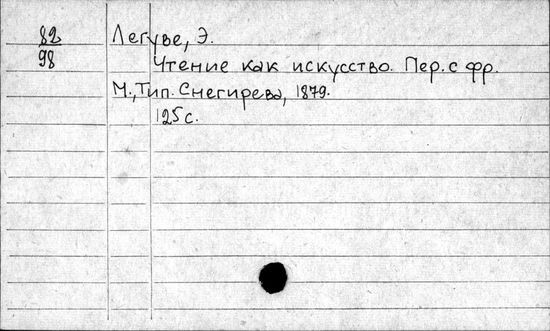 82 Легуве, Э.
98 Чтение как искусство. Пер. с фр.
М., Тип. Снегирева, 1879.
125 с.